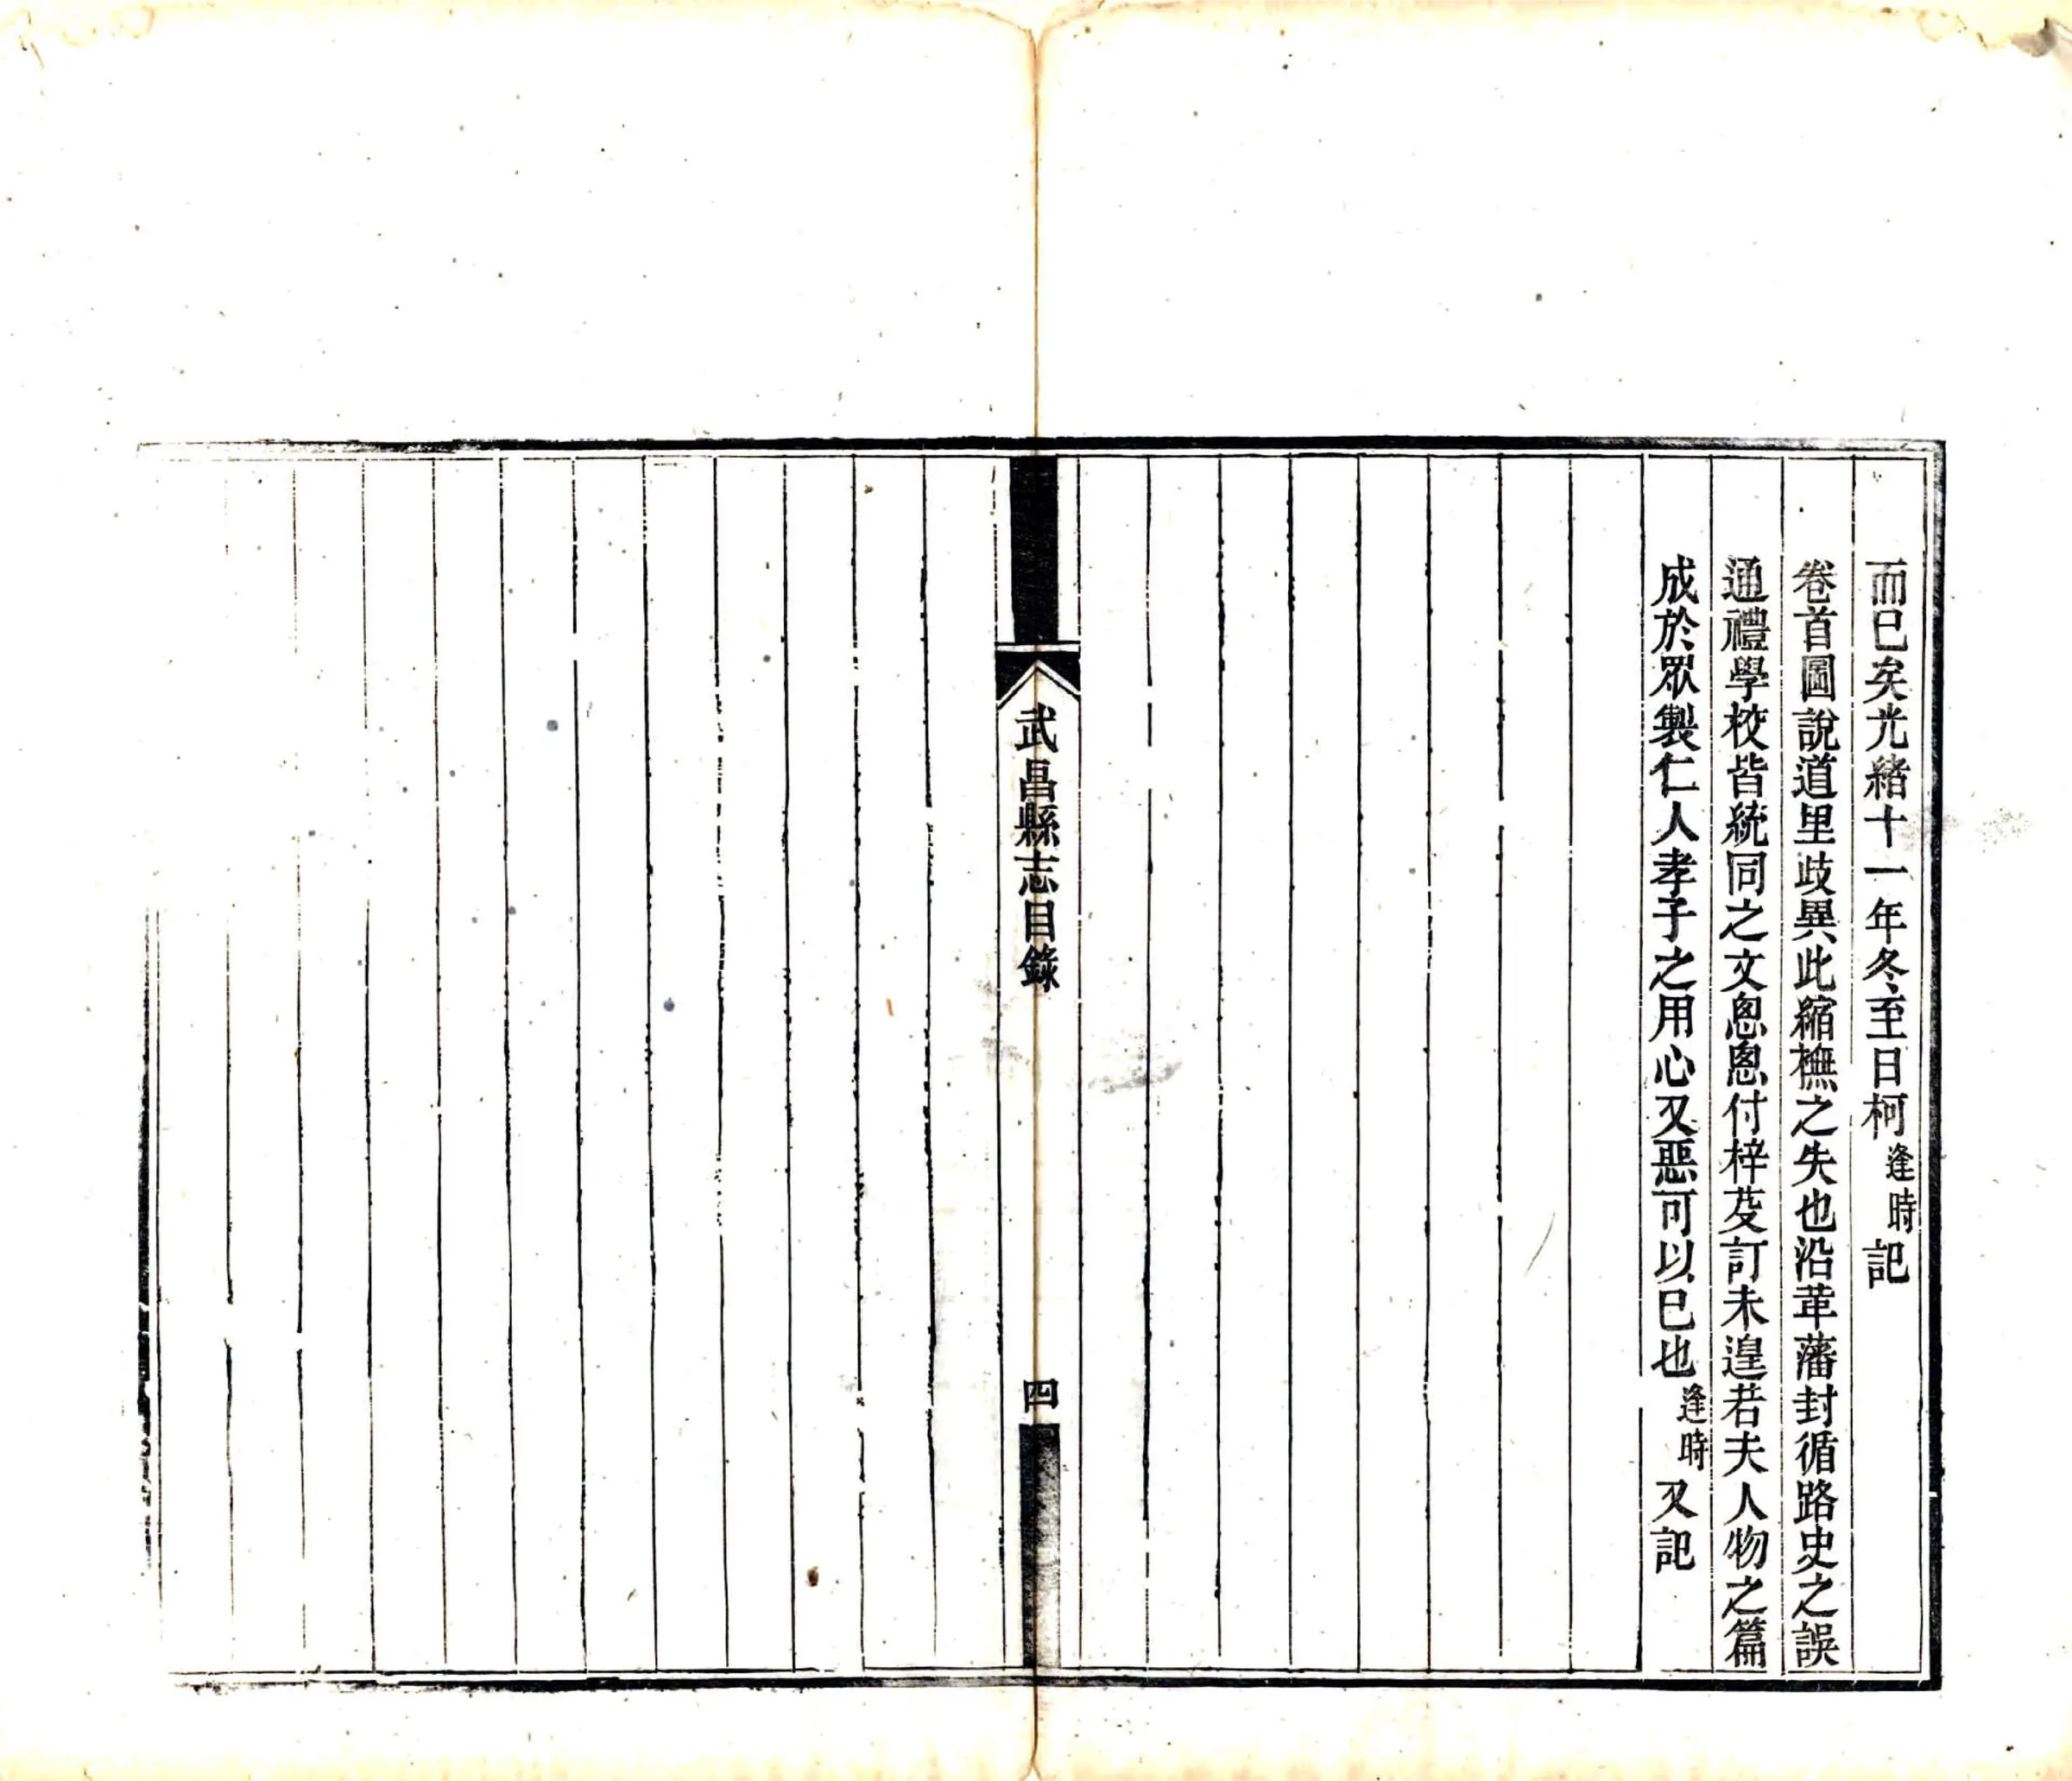 而已矣光緒十一年冬至日柯逢時記
卷首圖說道里歧異此縮橅之失也沿革藩封循路史之誤
通禮學校皆統同之文悤悤付梓芟訂未遑若夫人物之篇
成於眾製仁人孝子之用心又惡可以已也逢時又記
武昌縣志目錄
四